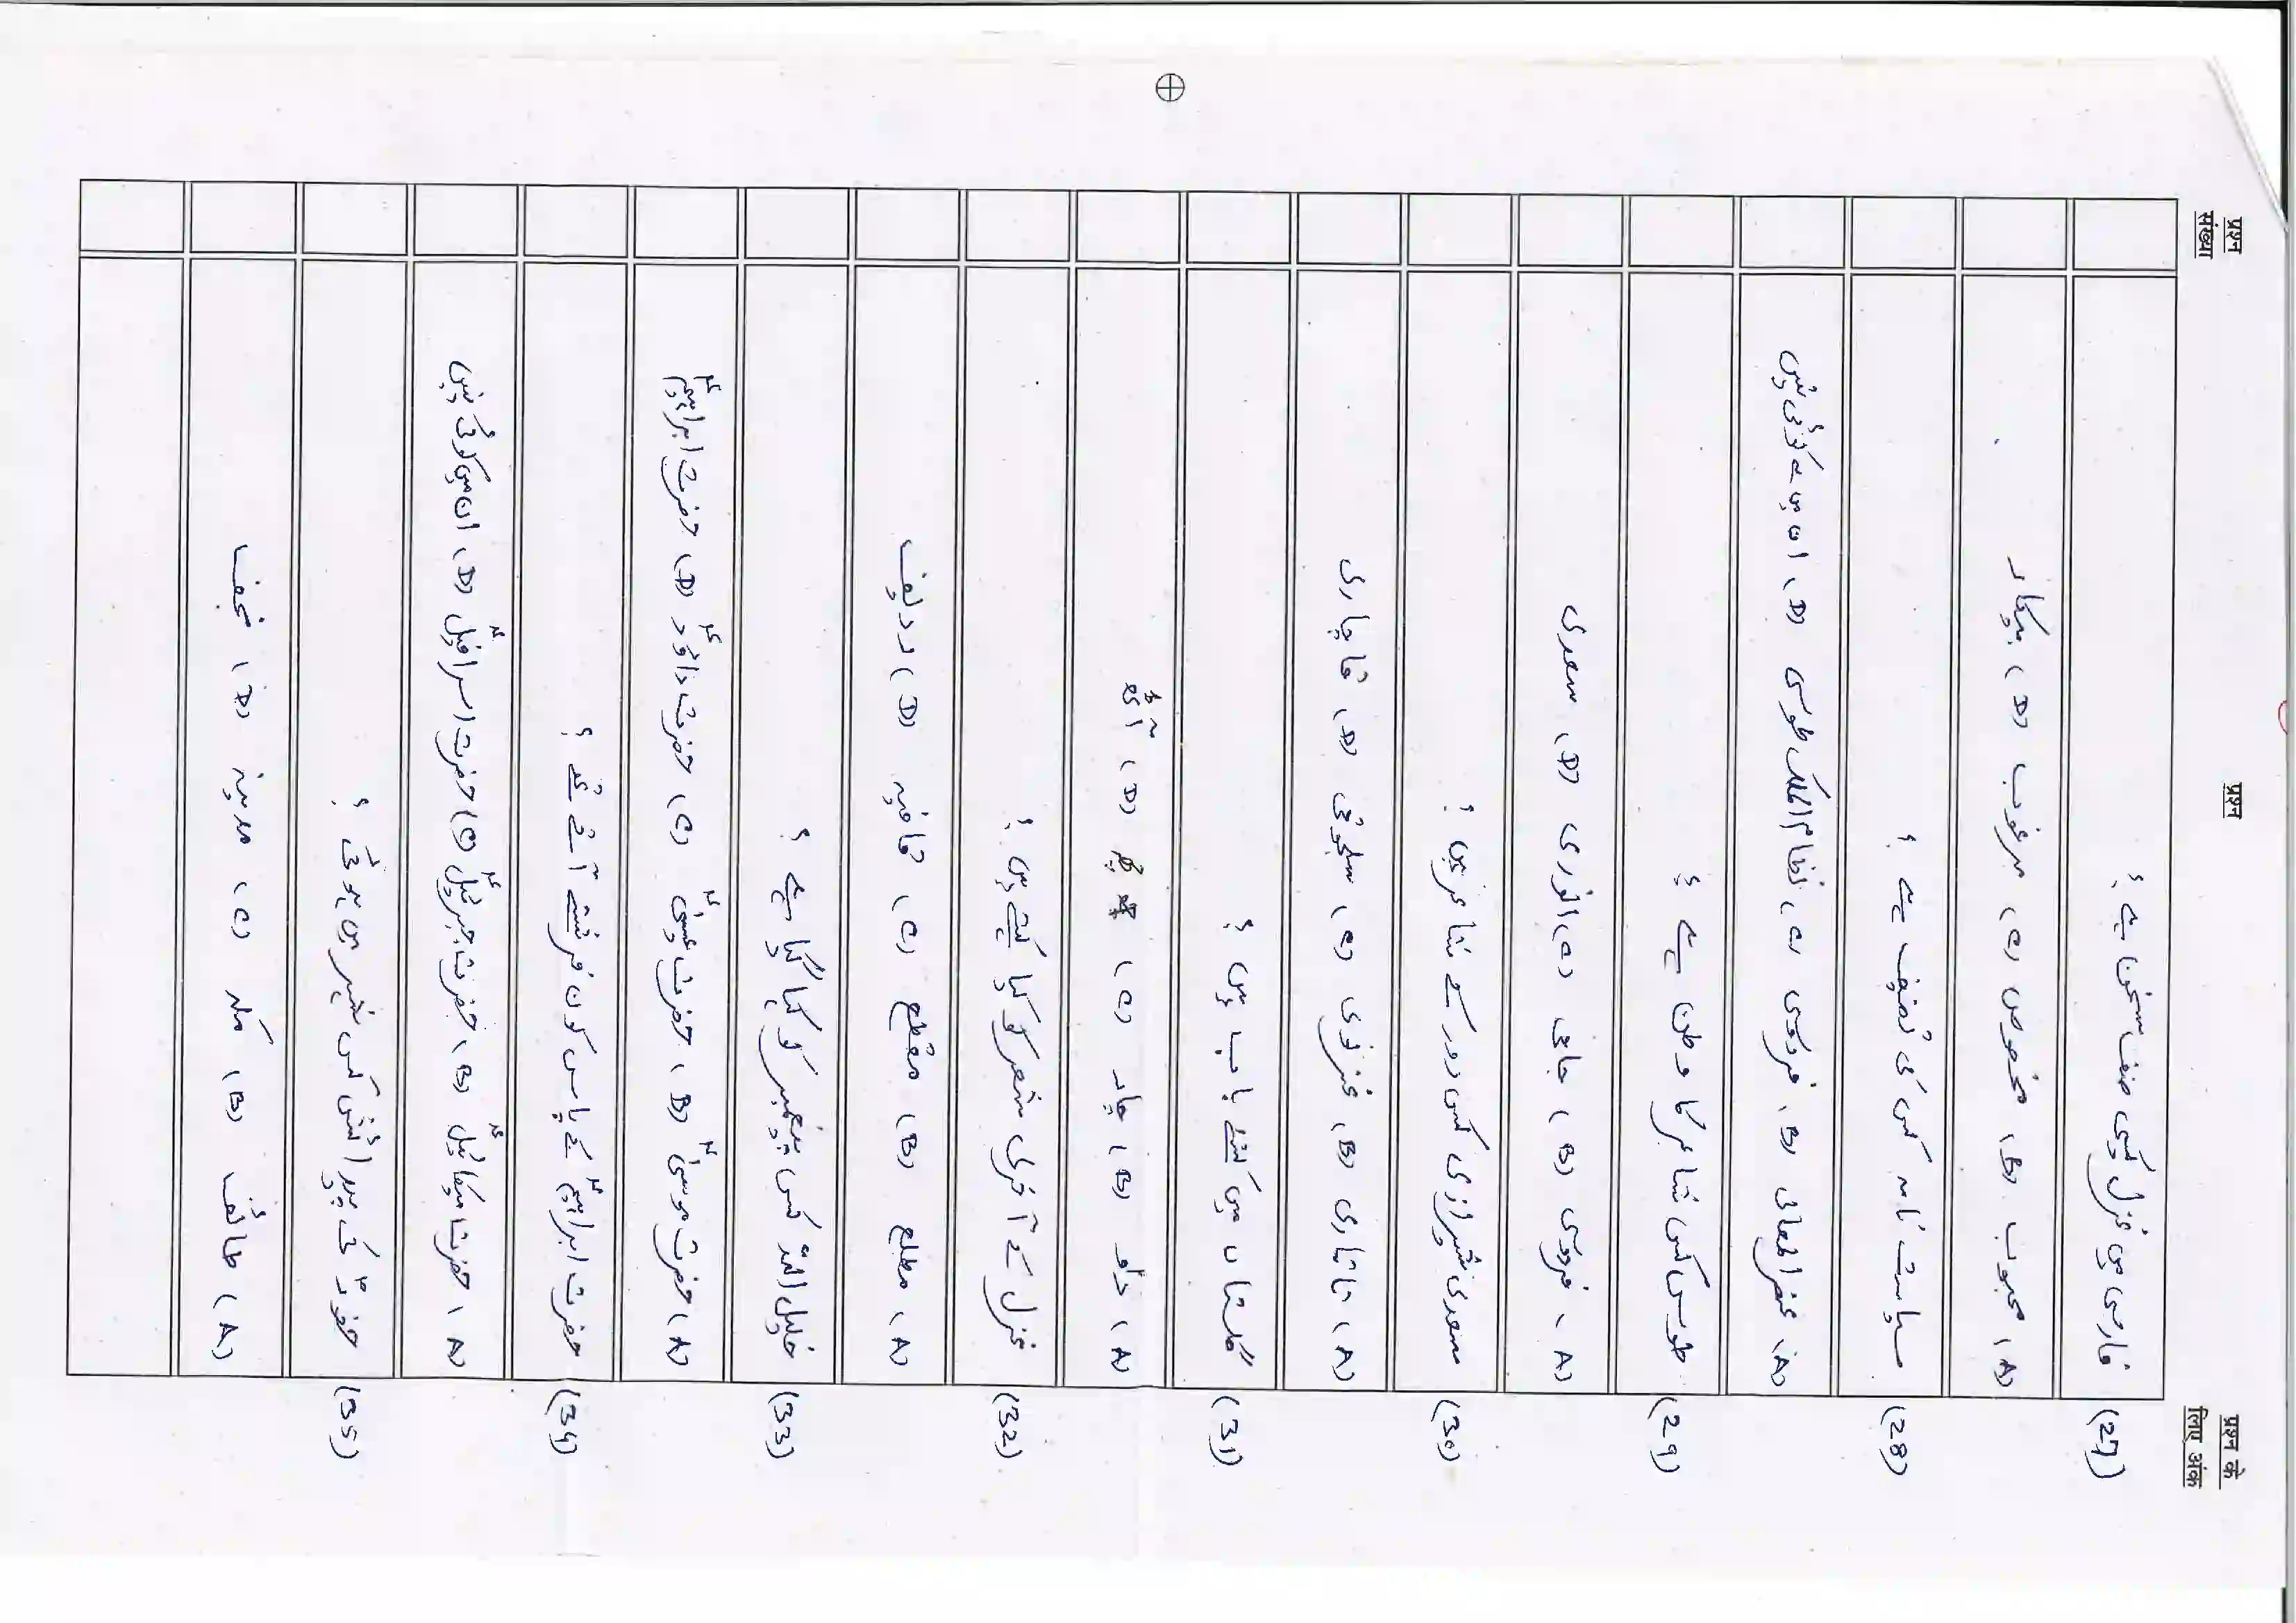 प्रश्न संख्या
प्रश्न
प्रश्न के लिए अंक
(27) فارسی میں غزل کیسی صنف سخن ہے ؟
(A) محبوب (B) مخصوص (C) مرغوب (D) بیکار
(28) سیاست نامہ کس کی تصنیف ہے ؟
(A) عنصر المعالی (B) فردوسی (C) نظام الملک طوسی (D) ان میں سے کوئی نہیں
(29) طوس کس شاعر کا وطن ہے ؟
(A) فردوسی (B) جامی (C) انوری (D) سعدی
(30) سعدی شیرازی کس دور کے شاعر ہیں ؟
(A) تاتاری (B) غزنوی (C) سلجوقی (D) قاچاری
(31) گلستاں میں کتنے باب ہیں ؟
(A) دو (B) چار (C) چھ (D) آٹھ
(32) غزل کے آخری شعر کو کیا کہتے ہیں ؟
(A) مطلع (B) مقطع (C) قافیہ (D) ردیف
(33) خلیل اللہ کس پیغمبر کو کہا گیا ہے ؟
(A) حضرت موسیٰؑ (B) حضرت عیسیٰؑ (C) حضرت داؤدؑ (D) حضرت ابراہیمؑ
(34) حضرت ابراہیمؑ کے پاس کون فرشتے آئے تھے ؟
(A) حضرت میکائیلؑ (B) حضرت جبرئیلؑ (C) حضرت اسرافیلؑ (D) ان میں کوئی نہیں
(35) حضورؐ کی پیدائش کس شہر میں ہوئی ؟
(A) طائف (B) مکہ (C) مدینہ (D) نجف